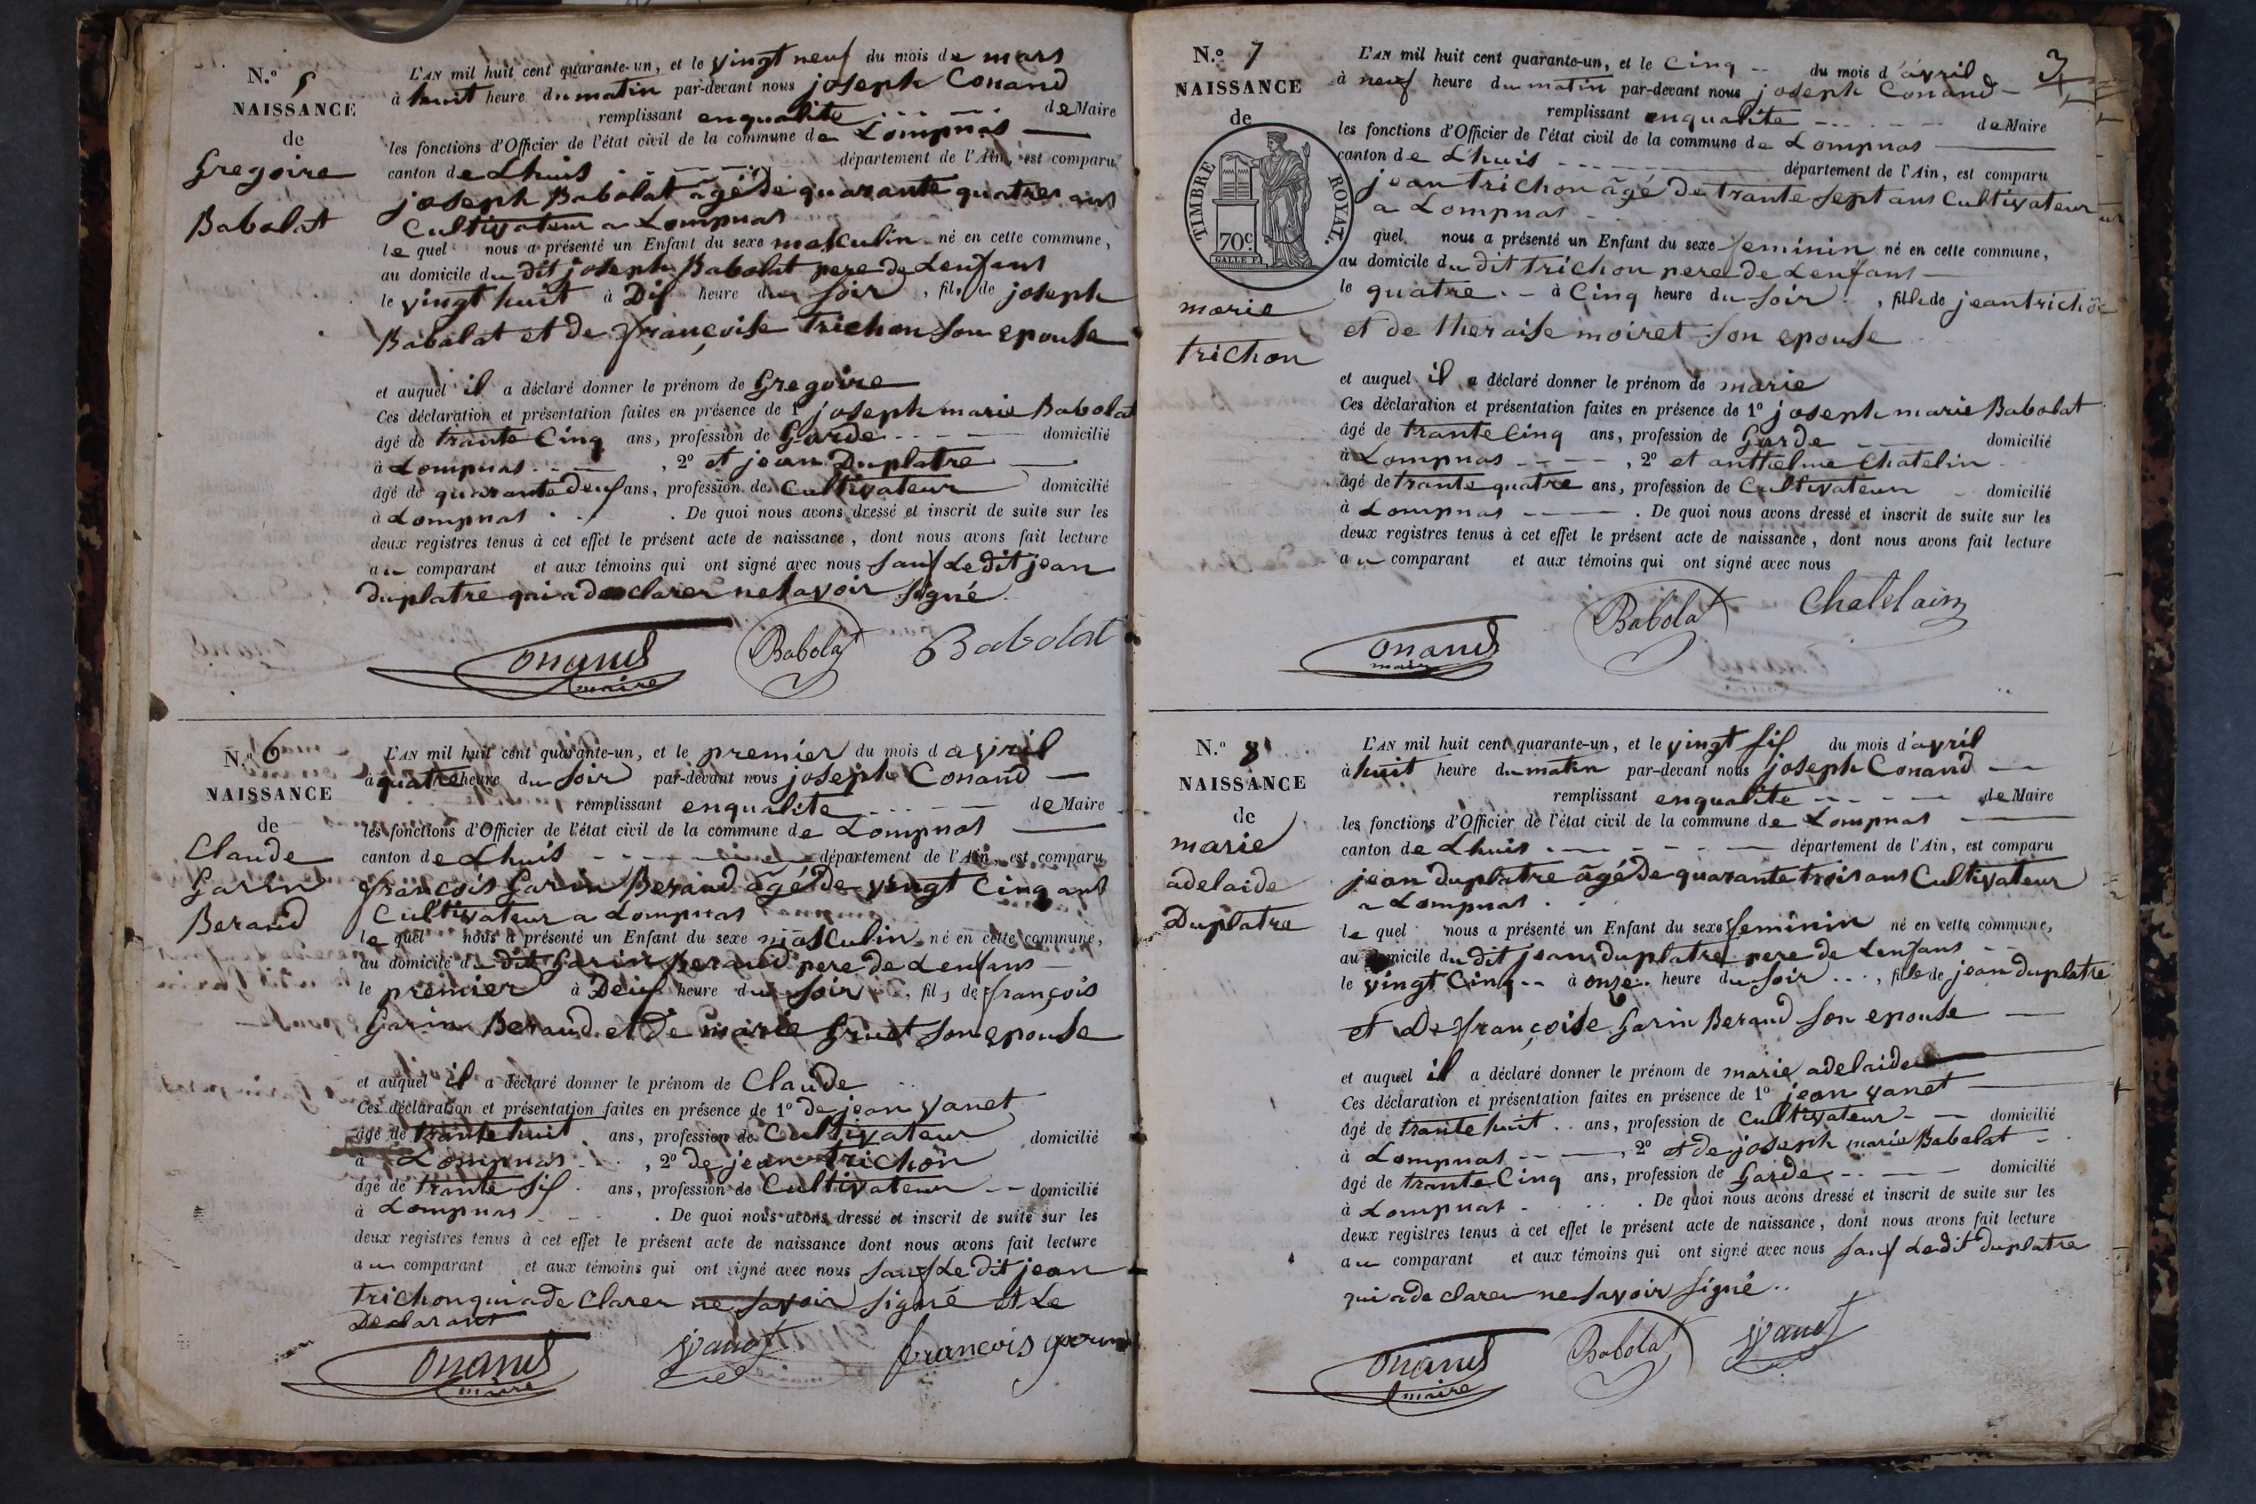 N.º 5
NAISSANCE
de
Gregoire
Babolat
L'AN mil huit cent quarante-un, et le vingt neuf du mois de mars
à huit heure du matin par-devant nous joseph Conand
remplissant enqualite de Maire
les fonctions d'Officier de l'état civil de la commune de Lompnas
canton de Lhuis département de l'Ain, est comparu
joseph Babolat âgé de quarante quatres ans
Cultivateur a Lompnas
le quel nous a présenté un Enfant du sexe masculin né en cette commune,
au domicile du dit joseph Babolat pere de Lenfans
le vingt huit à Dis heure du soir, fils de joseph
Babolat et de françoise trichon son epouse
et auquel il a déclaré donner le prénom de Gregoire
Ces déclaration et présentation faites en présence de 1º joseph marie Babolat
âgé de trante Cinq ans, profession de Garde domicilié
à Lompnas, 2º et jean Duplatre
âgé de quarante deus ans, profession de Cultivateur domicilié
à Lompnas. De quoi nous avons dressé et inscrit de suite sur les
deux registres tenus à cet effet le présent acte de naissance, dont nous avons fait lecture
au comparant et aux témoins qui ont signé avec nous sauf Ledit jean
duplatre qui a de clarer ne savoir signé
Conand
maire
Babolat
Babolat
N.º 6
NAISSANCE
de
Claude
Garin
Beraud
L'AN mil huit cent quarante-un, et le premier du mois d avril
à quatre heure du soir par-devant nous joseph Conand
remplissant enqualite de Maire
les fonctions d'Officier de l'état civil de la commune de Lompnas
canton de Lhuis département de l'Ain, est comparu
françois Garin Beraud âgé de vingt Cinq ans
Cultivateur a Lompnas
le quel nous a présenté un Enfant du sexe masculin né en cette commune,
au domicile du dit Garin Beraud pere de Lenfans
le premier à Deus heure du soir, fils de françois
Garin Beraud et de marie Gruet son epouse
et auquel il a déclaré donner le prénom de Claude
Ces déclaration et présentation faites en présence de 1º de jean vanet
âgé de trante huit ans, profession de Cultivateur domicilié
à Lompnas, 2º de jean trichon
âgé de trante sis ans, profession de Cultivateur domicilié
à Lompnas. De quoi nous avons dressé et inscrit de suite sur les
deux registres tenus à cet effet le présent acte de naissance dont nous avons fait lecture
au comparant et aux témoins qui ont signé avec nous sauf Le dit jean
trichon qui a de Clarer ne savoir signé et Le
Declarant
Conand
maire
jvanet
francois garin
N.º 7
NAISSANCE
de
TIMBRE ROYAL.
70c.
marie
trichon
3
L'AN mil huit cent quarante-un, et le Cinq du mois d'avril
à neuf heure du matin par-devant nous joseph Conand
remplissant enqualite de Maire
les fonctions d'Officier de l'état civil de la commune de Lompnas
canton de Lhuis département de l'Ain, est comparu
jean trichon âgé de trante sept ans Cultivateur
a Lompnas
quel nous a présenté un Enfant du sexe feminin né en cette commune,
au domicile du dit trichon pere de Lenfans
le quatre à Cinq heure du soir, fille de jean trichon
et de theraise moiret son epouse
et auquel il a déclaré donner le prénom de marie
Ces déclaration et présentation faites en présence de 1º joseph marie Babolat
âgé de trante Cinq ans, profession de Garde domicilié
à Lompnas, 2º et anthelme Chatelin
âgé de trante quatre ans, profession de Cultivateur domicilié
à Lompnas. De quoi nous avons dressé et inscrit de suite sur les
deux registres tenus à cet effet le présent acte de naissance, dont nous avons fait lecture
au comparant et aux témoins qui ont signé avec nous
Conand
maire
Babolat
Chatelain
N.º 8
NAISSANCE
de
marie
adelaide
Duplatre
L'AN mil huit cent quarante-un, et le vingt sis du mois d'avril
à huit heure du matin par-devant nous joseph Conand
remplissant enqualite de Maire
les fonctions d'Officier de l'état civil de la commune de Lompnas
canton de Lhuis département de l'Ain, est comparu
jean duplatre âgé de quarante trois ans Cultivateur
a Lompnas
le quel nous a présenté un Enfant du sexe feminin né en cette commune,
au domicile du dit jean duplatre pere de Lenfans
le vingt Cinq à onze heure du soir, fille de jean duplatre
et De françoise Garin Beraud son epouse
et auquel il a déclaré donner le prénom de marie adelaide
Ces déclaration et présentation faites en présence de 1º jean vanet
âgé de trante huit ans, profession de Cultivateur domicilié
à Lompnas, 2º et de joseph marie Babolat
âgé de trante Cinq ans, profession de Garde domicilié
à Lompnas. De quoi nous avons dressé et inscrit de suite sur les
deux registres tenus à cet effet le présent acte de naissance, dont nous avons fait lecture
au comparant et aux témoins qui ont signé avec nous sauf Ledit duplatre
qui a de clarer ne savoir signé
Conand
maire
Babolat
jvanet